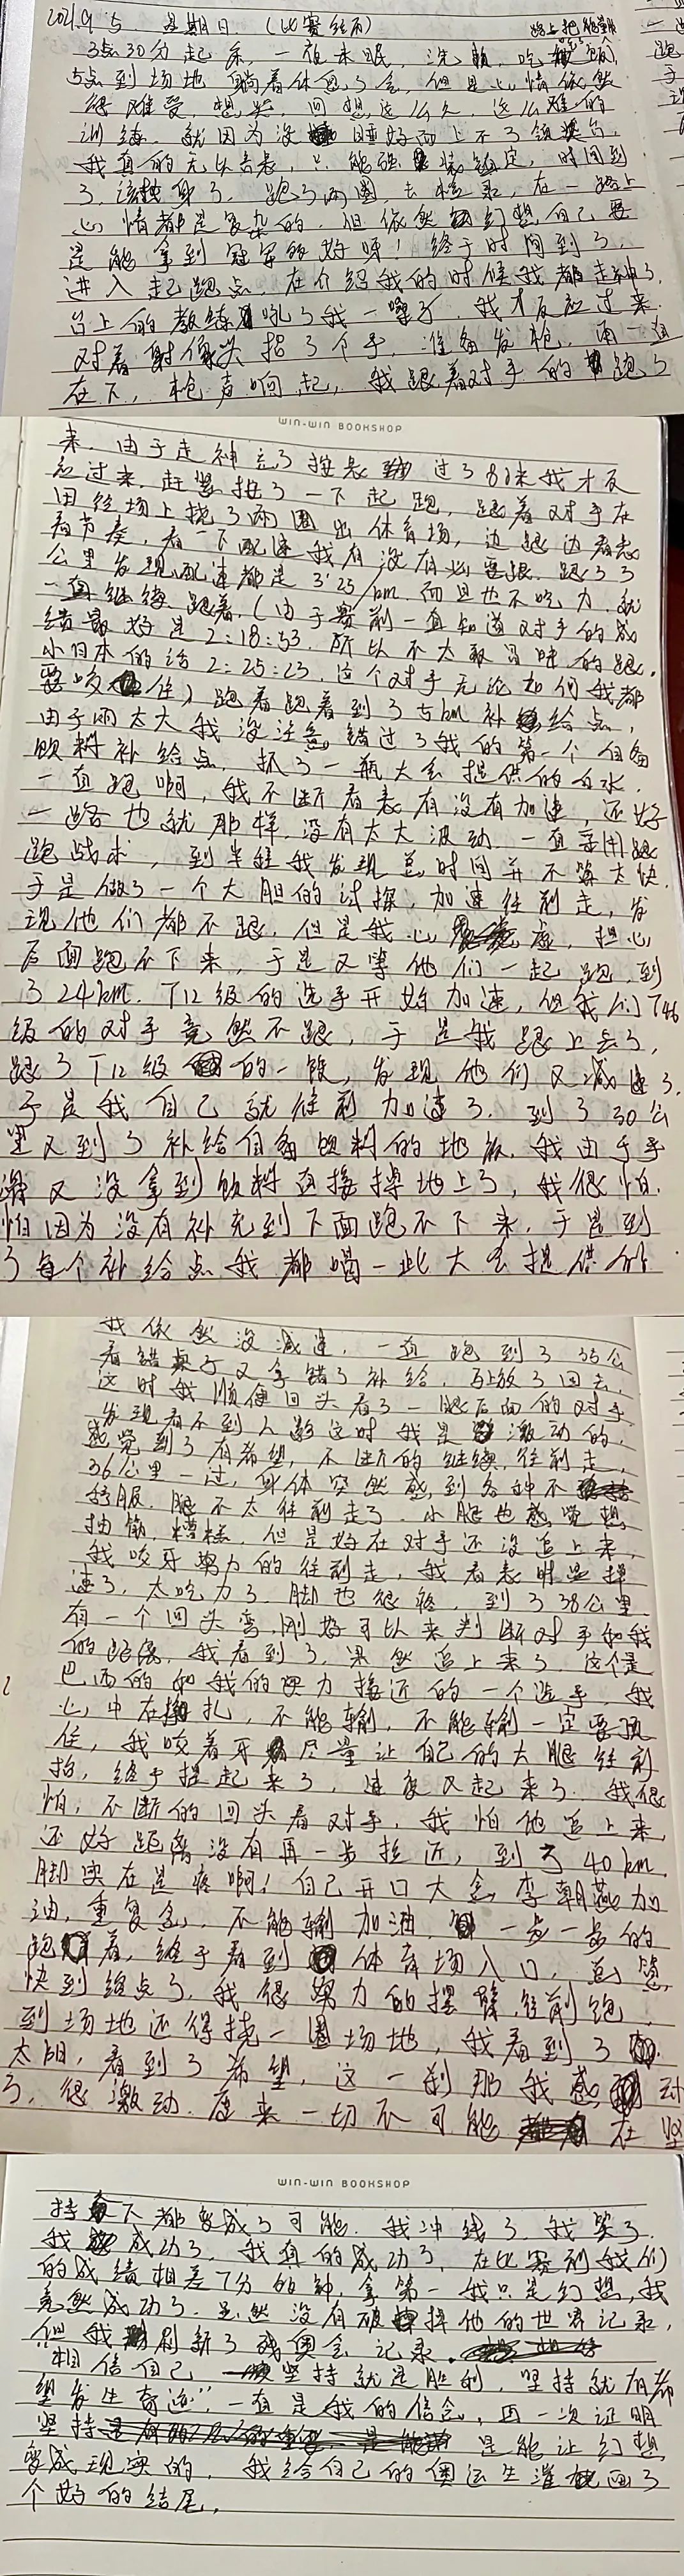 2021.9.5 星期日.(比赛经历)
3点30分起床,一夜未眠,洗脸,吃
5点到场地 躺着休息了会,但是心情依然
很难受,想哭,回想这么久,这么难的
训练,就因为没睡好而上不了领奖台,
我真的无以言表,只能强装镇定,时间到
了,该热身了,跑了两圈,去检录,在一路上
心情都是复杂的,但依然幻想自己要
是能拿到冠军的好呀!终于时间到了,
进入起跑点,在介绍我的时候我都走神了,
台上的教练吼了我一嗓子,我才反应过来
对着射像头招了个手,准备发枪,雨一直
在下,枪声响起,我跟着对手的跑了
WIN-WIN BOOKSHOP
来,由于走神忘了按表 过了80米我才反
应过来,赶紧按了一下起跑,跟着对手在
田径场上挠了两圈出体育场,边跟边看表
看节奏,看一下配速我有没有必要跟.跑了3
公里发现配速都是3'25/km.而且也不吃力,就
一直继续跟着,(由于赛前一直知道对手的成
绩最好是2:18:53.所以不太敢冒昧的跟,
小日本的话2:25:23,这个对手无论如何我都
要咬住)跑着跑着到了5km补给点,
由于雨太大我没注意,错过了我的第一个自备
饮料补给点,抓了一瓶大会提供的白水,
一直跑啊,我不断看表有没有加速,还好
一路也就那样,没有太大波动,一直采用跟
跑战术,到半程我发现总时间并不算太快,
于是做了一个大胆的试探,加速往前走,发
现他们都不跟,但是我心虚,担心
后面跑不下来,于是又等他们一起跑,到
了24km.T12级的选手开始加速,但我们T46
级的对手竟然不跟,于是我跟上去了,
跟了T12级的一段,发现他们又减速了,
于是我自己就往前加速了.到了30公
里又到了补给自备饮料的地方.我由于手
滑又没拿到饮料直接掉地上了,我很怕.
怕因为没有补充到下面跑不下来,于是到
了每个补给点我都喝一些大会提供的
我依然没减速,一直跑到了35公
看错桌子又拿错了补给,马上放了回去,
这时我顺便回头看了一眼后面的对手
发现看不到人影这时我是激动的,
感觉到了有希望,不断的继续往前走,
36公里一过,身体突然感到各种不
舒服.腿不太往前走了,小腿也感觉想
抽筋,糟糕,但是好在对手还没追上来,
我咬牙努力的往前走,我看表明显掉
速了,太吃力了.脚也很疼,到了38公里
有一个回头弯,刚好可以来判断对手和我
的距离,我看到了,果然追上来了.这个是
巴西的和我的实力接近的一个选手,我
心中在挣扎,不能输,不能输一定要顶
住,我咬着牙尽量让自己的大腿往前
抬,终于提起来了,速度又起来了.我很
怕,不断的回头看对手,我怕他追上来,
还好距离没有再一步拉近,到了40km.
脚实在是疼啊!自己开口大念,李朝燕加
油,重复念,不能输加油,一步一步的
跑着,终于看到体育场入口,总算
快到终点了,我很努力的摆臂往前跑,
到场地还得挠一圈场地,我看到了
太阳,看到了希望,这一刹那我感动
了,很激动.原来一切不可能在坚
WIN-WIN BOOKSHOP
持下都变成了可能.我冲线了,我哭了.
我成功了,我真的成功了,在比赛前我们
的成绩相差7分钟,拿第一我只是幻想,我
竟然成功了.虽然没有破掉他的世界记录,
但我刷新了残奥会记录.
相信自己 坚持就是胜利,坚持就有希
望发生奇迹"一直是我的信念,再一次证明
坚持是能让幻想
变成现实的,我给自己的奥运生涯画了
个好的结尾.